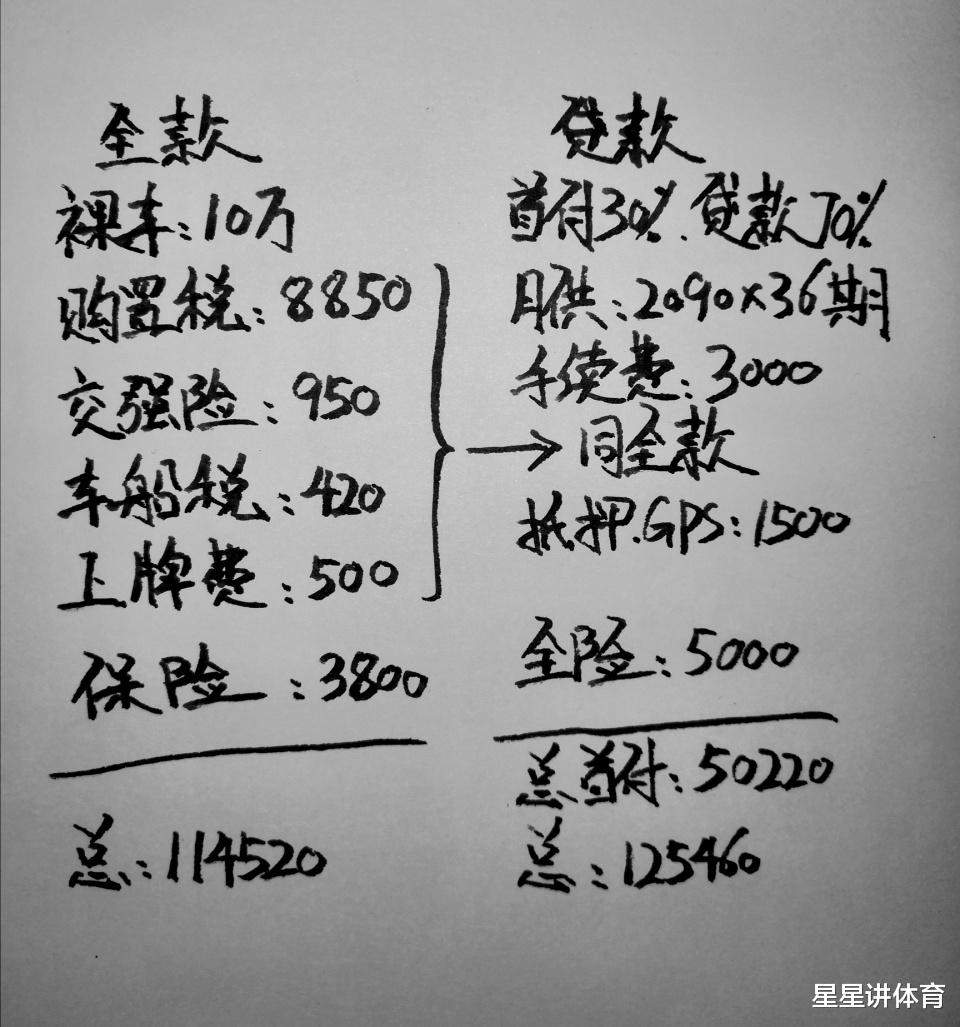 全款
裸车:10万
购置税:8850
交强险:950
车船税:420
上牌费:500
保险:3800
总:114520
贷款
首付30%.贷款70%
月供:2090×36期
手续费:3000
→同全款
抵押.GPS:1500
全险:5000
总首付:50220
总:125460
星星讲体育